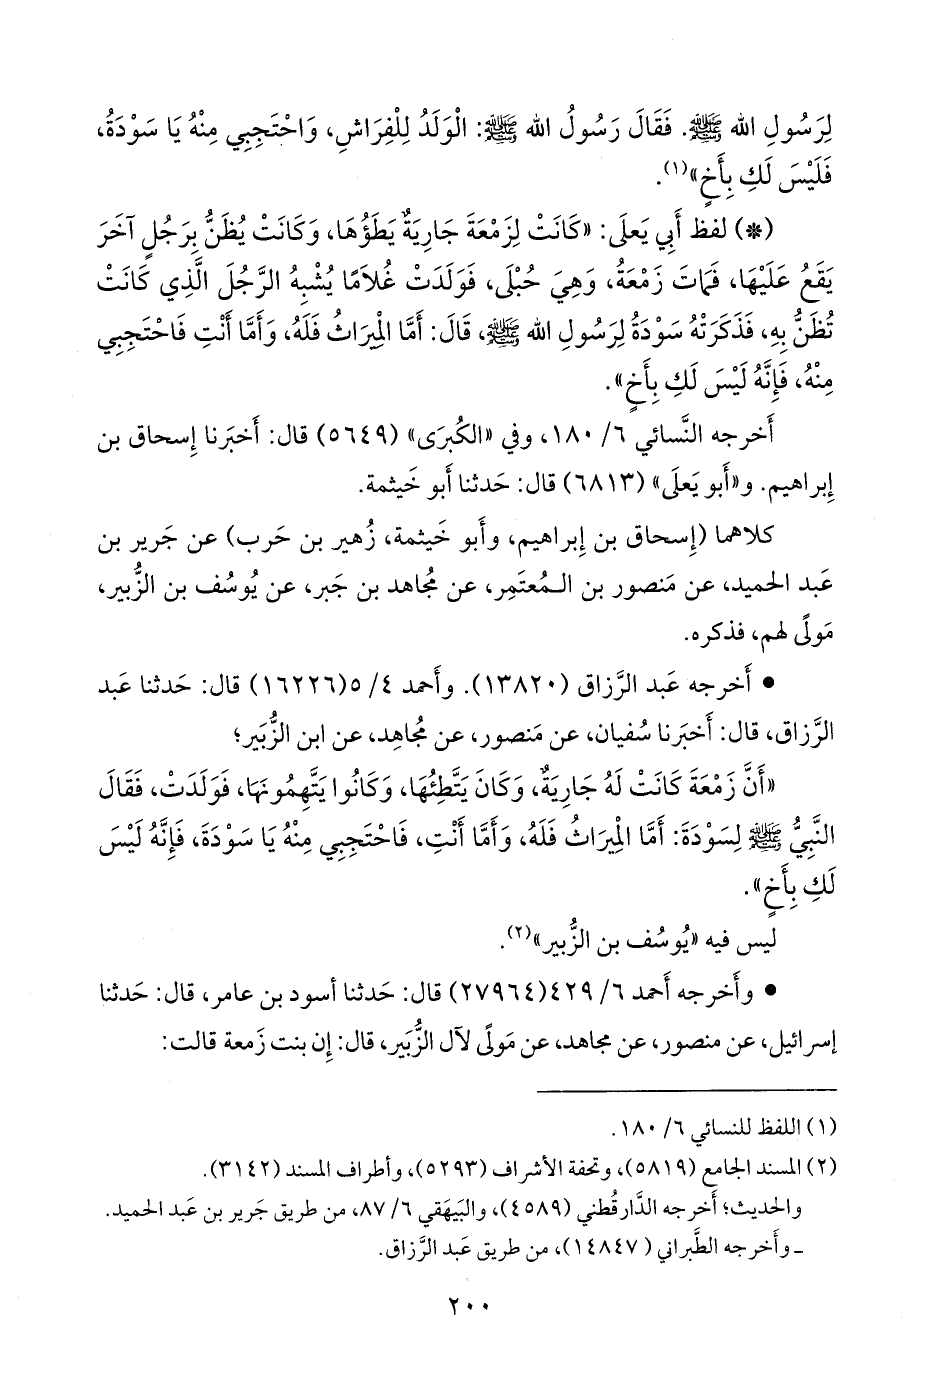 لِرَسُولِ الله ﷺ. فَقَالَ رَسُولُ الله ﷺ: الْوَلَدُ لِلْفِرَاشِ، وَاحْتَجِبِي مِنْهُ يَا سَوْدَةُ،
فَلَيْسَ لَكِ بِأَخٍ»(١).
(*) لفظ أَبِي يَعلَى: «كَانَتْ لِزَمْعَةَ جَارِيَةٌ يَطَؤُهَا، وَكَانَتْ يُظَنُّ بِرَجُلٍ آخَرَ
يَقَعُ عَلَيْهَا، فَمَاتَ زَمْعَةُ، وَهِيَ حُبْلَى، فَوَلَدَتْ غُلَامًا يُشْبِهُ الرَّجُلَ الَّذِي كَانَتْ
تُظَنُّ بِهِ، فَذَكَرَتْهُ سَوْدَةُ لِرَسُولِ الله ﷺ، قَالَ: أَمَّا الْمِيرَاثُ فَلَهُ، وَأَمَّا أَنْتِ فَاحْتَجِبِي
مِنْهُ، فَإِنَّهُ لَيْسَ لَكِ بِأَخٍ».
أَخرجه النَّسائي ٦/ ١٨٠، وفي «الكُبرَى» (٥٦٤٩) قال: أَخبَرنا إِسحاق بن
إِبراهيم. و«أَبو يَعلَى» (٦٨١٣) قال: حَدثنا أَبو خَيثمة.
كلاهما (إِسحاق بن إِبراهيم، وأَبو خَيثمة، زُهير بن حَرب) عن جَرير بن
عَبد الحميد، عن مَنصور بن المُعتَمِر، عن مُجاهد بن جَبر، عن يُوسُف بن الزُّبير،
مَولًى لهم، فذكره.
• أَخرجه عَبد الرَّزاق (١٣٨٢٠). وأَحمد ٤/ ٥(١٦٢٢٦) قال: حَدثنا عَبد
الرَّزاق، قال: أَخبَرنا سُفيان، عن مَنصور، عن مُجاهِد، عن ابن الزُّبَير؛
«أَنَّ زَمْعَةَ كَانَتْ لَهُ جَارِيَةٌ، وَكَانَ يَتَّطِئُهَا، وَكَانُوا يَتَّهِمُونَهَا، فَوَلَدَتْ، فَقَالَ
النَّبِيُّ ﷺ لِسَوْدَةَ: أَمَّا الْمِيرَاثُ فَلَهُ، وَأَمَّا أَنْتِ، فَاحْتَجِبِي مِنْهُ يَا سَوْدَةَ، فَإِنَّهُ لَيْسَ
لَكِ بِأَخٍ».
ليس فيه «يُوسُف بن الزُّبير»(٢).
• وأَخرجه أَحمد ٦/ ٤٢٩(٢٧٩٦٤) قال: حَدثنا أسود بن عامر، قال: حَدثنا
إسرائيل، عن منصور، عن مجاهد، عن مَولًى لآل الزُّبَير، قال: إِن بنت زَمعة قالت:
(١) اللفظ للنسائي ٦/ ١٨٠.
(٢) المسند الجامع (٥٨١٩)، وتحفة الأشراف (٥٢٩٣)، وأطراف المسند (٣١٤٢).
والحديث؛ أَخرجه الدَّارقُطني (٤٥٨٩)، والبَيهَقي ٦/ ٨٧، من طريق جَرير بن عَبد الحميد.
ـ وأَخرجه الطَّبراني (١٤٨٤٧)، من طريق عَبد الرَّزاق.
٢٠٠